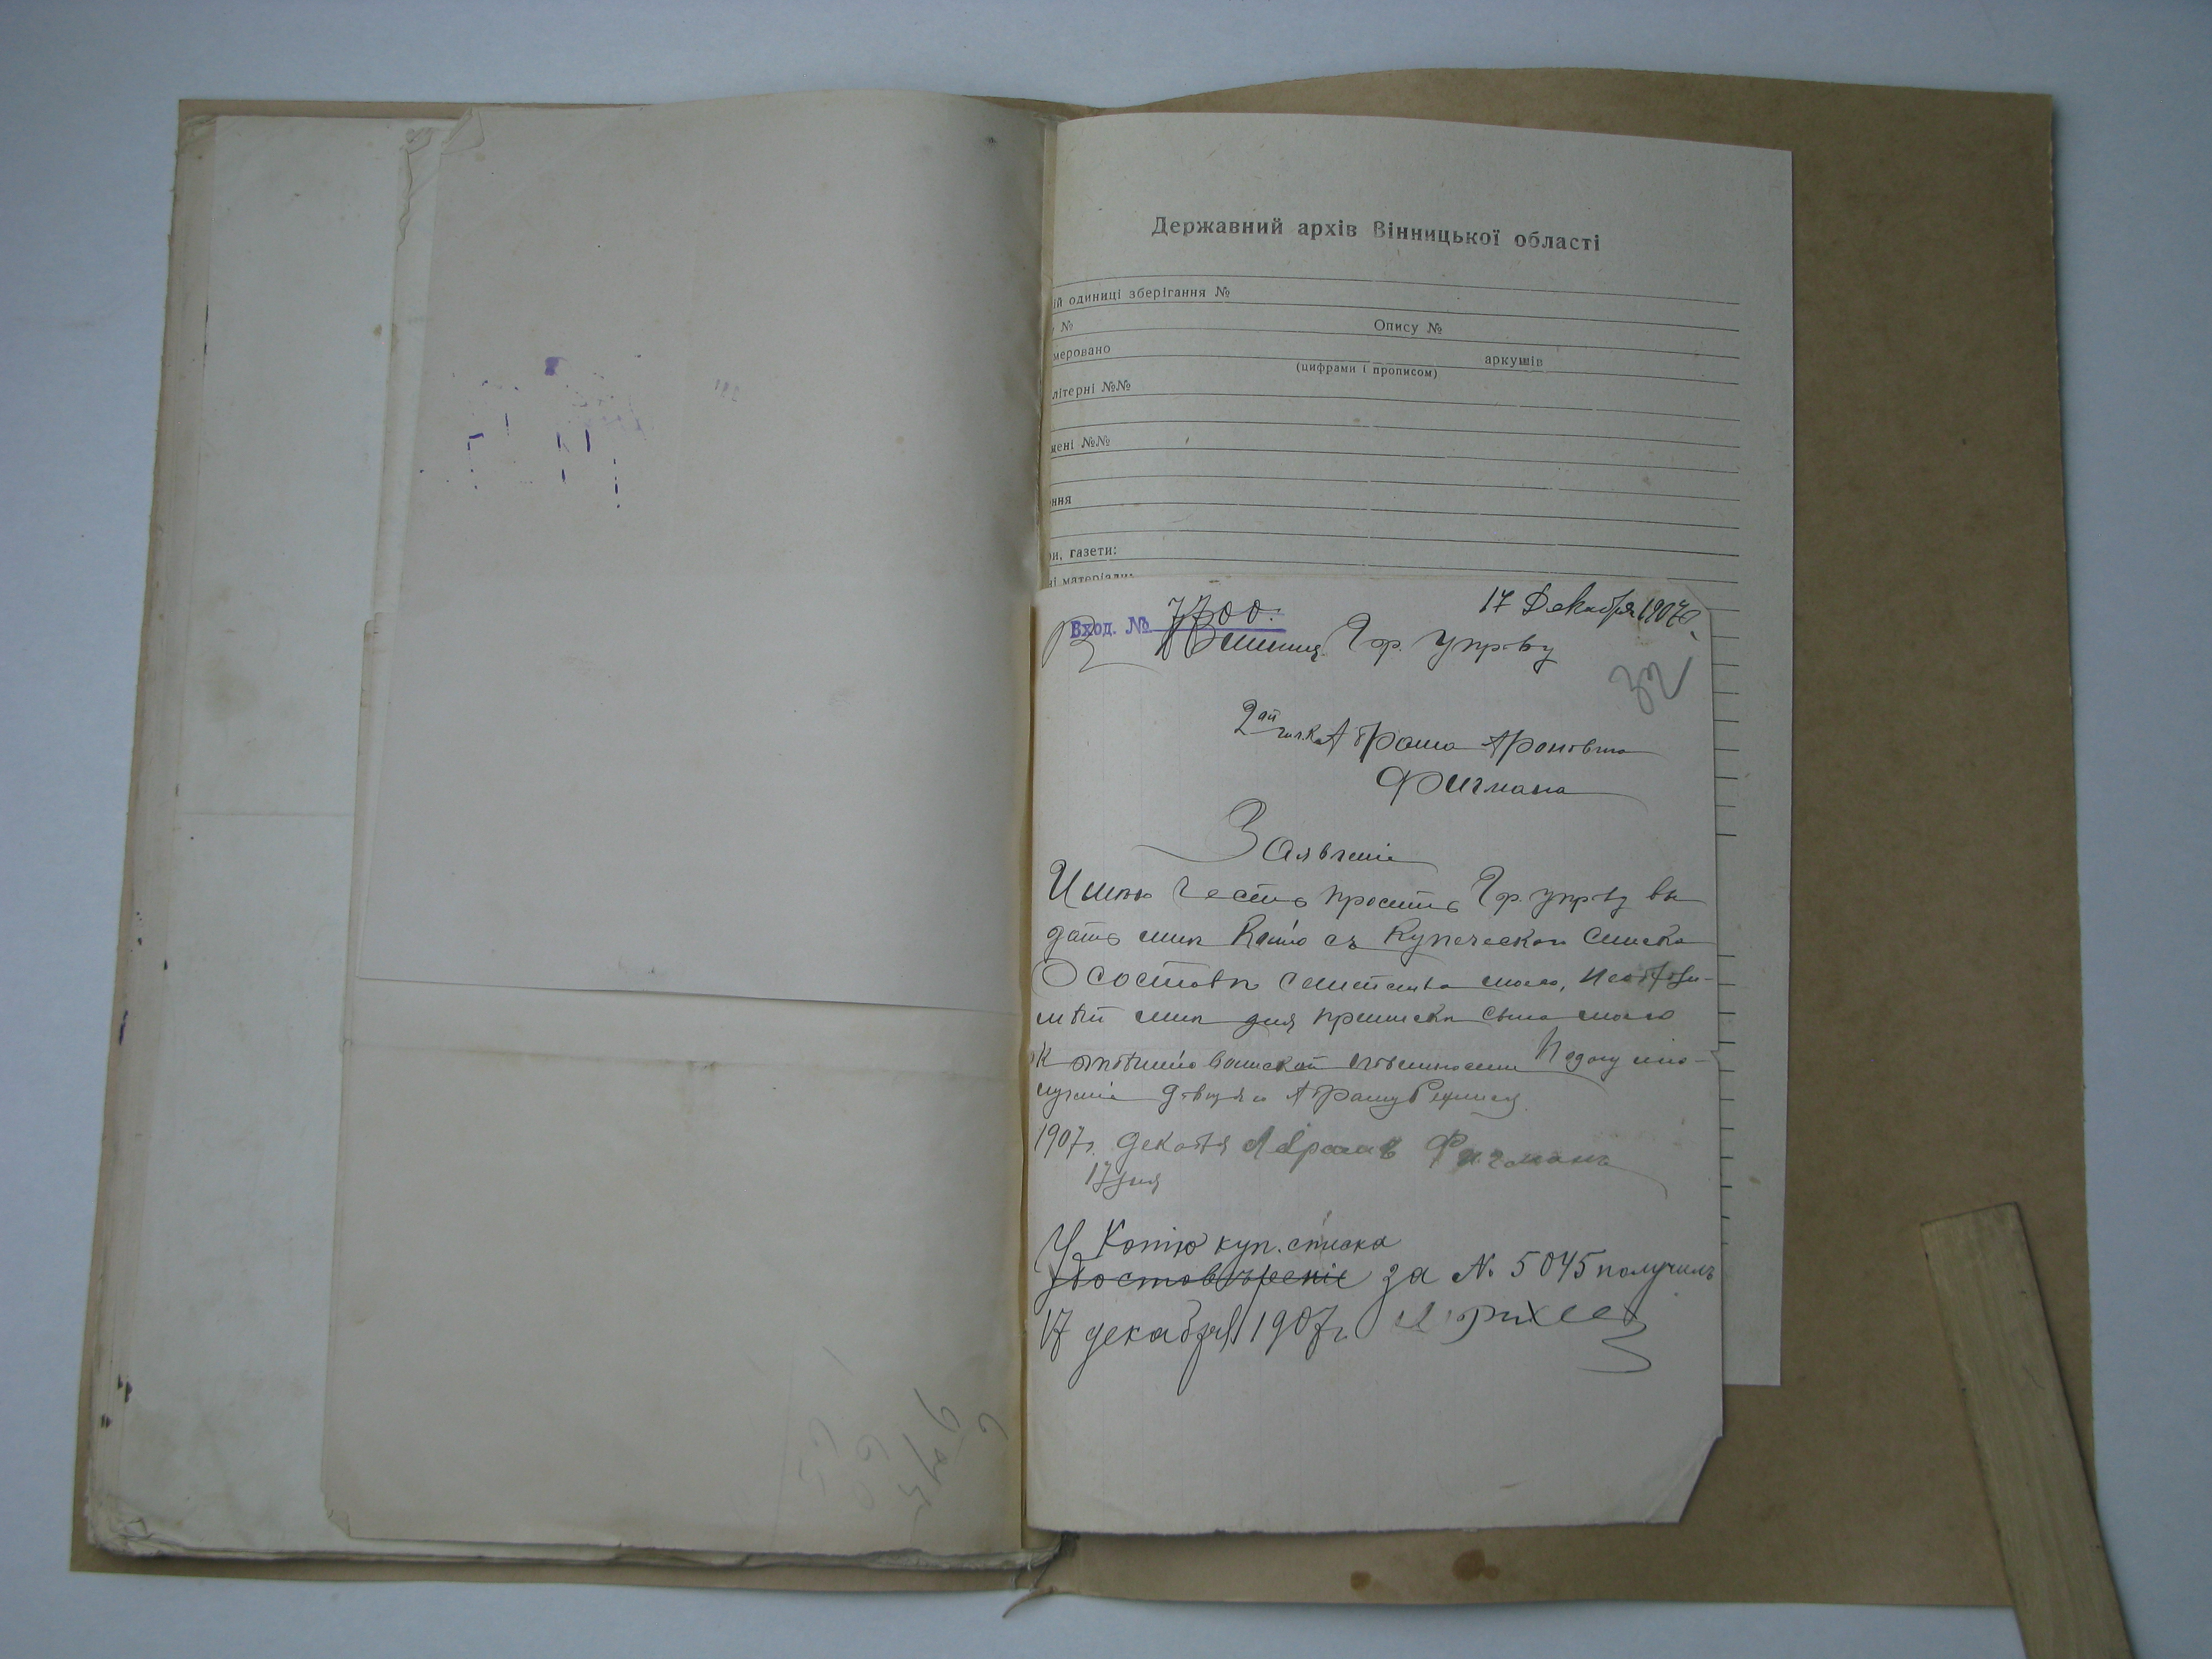 Державний архів Вінницької області
ій одиниці зберігання №
№ Опису №
меровано аркушів
(цифрами і прописом)
літерні №№
мені №№
ння
газети:
ні матеріали:
Вход. № 7700.
17 Декабря 1907 г.
Въ Винниц. Гор. Упр-ву
32
2ой гил. к. Абрама Ароновича
Фигмана
Заявленіе
Имѣю честь просить Гор. упр-ву вы
дать мнѣ копію съ купеческаго списка
О составѣ семейства моего, необходи-
мый мнѣ для приписки сына моего
к отбытію воинской повинности
1907 г. декабря Абрамъ Фигманъ
17 дня
У Копію куп. списка
достовѣреніе за № 5045 получилъ
17 декабря 1907 г.